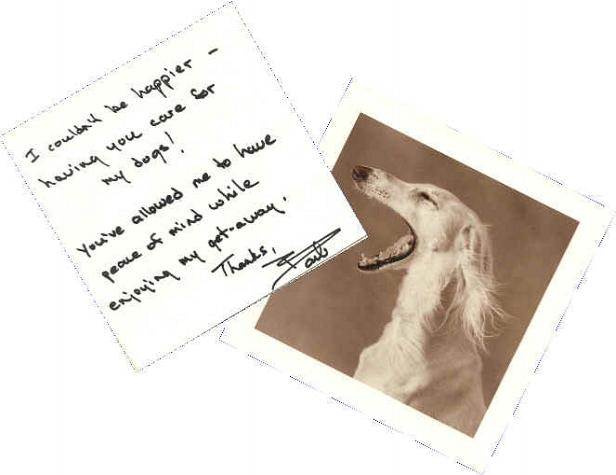 I couldn't be happier –
having you care for
my dogs!
You've allowed me to have
peace of mind while
enjoying my get-away.
Thanks,